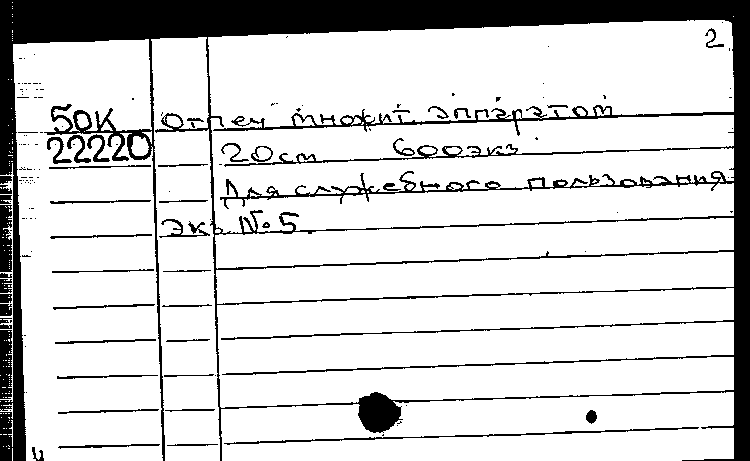 2
50К Отпеч множит. аппаратом
22220 20см 600экз
Для служебного пользования
Экз №5.
ч